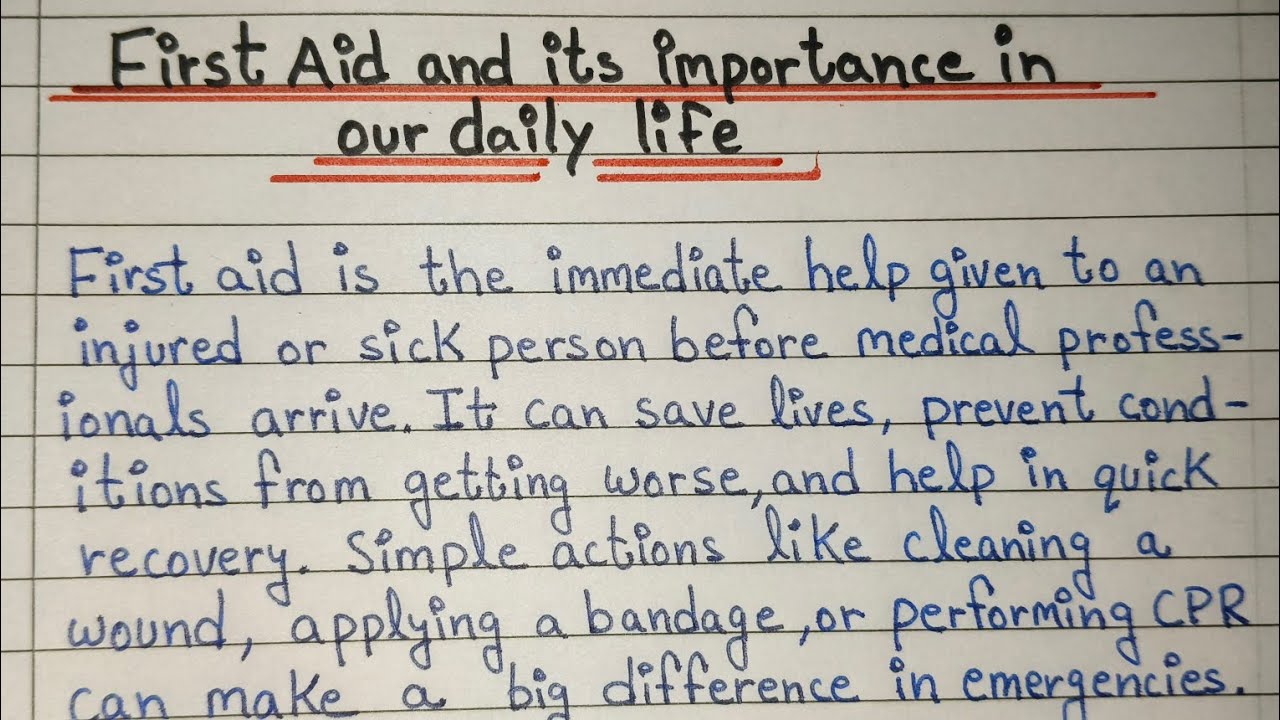 First Aid and its importance in
our daily life
First aid is the immediate help given to an
injured or sick person before medical profess-
ionals arrive. It can save lives, prevent cond-
itions from getting worse, and help in quick
recovery. Simple actions like cleaning a
wound, applying a bandage, or performing CPR
can make a big difference in emergencies.